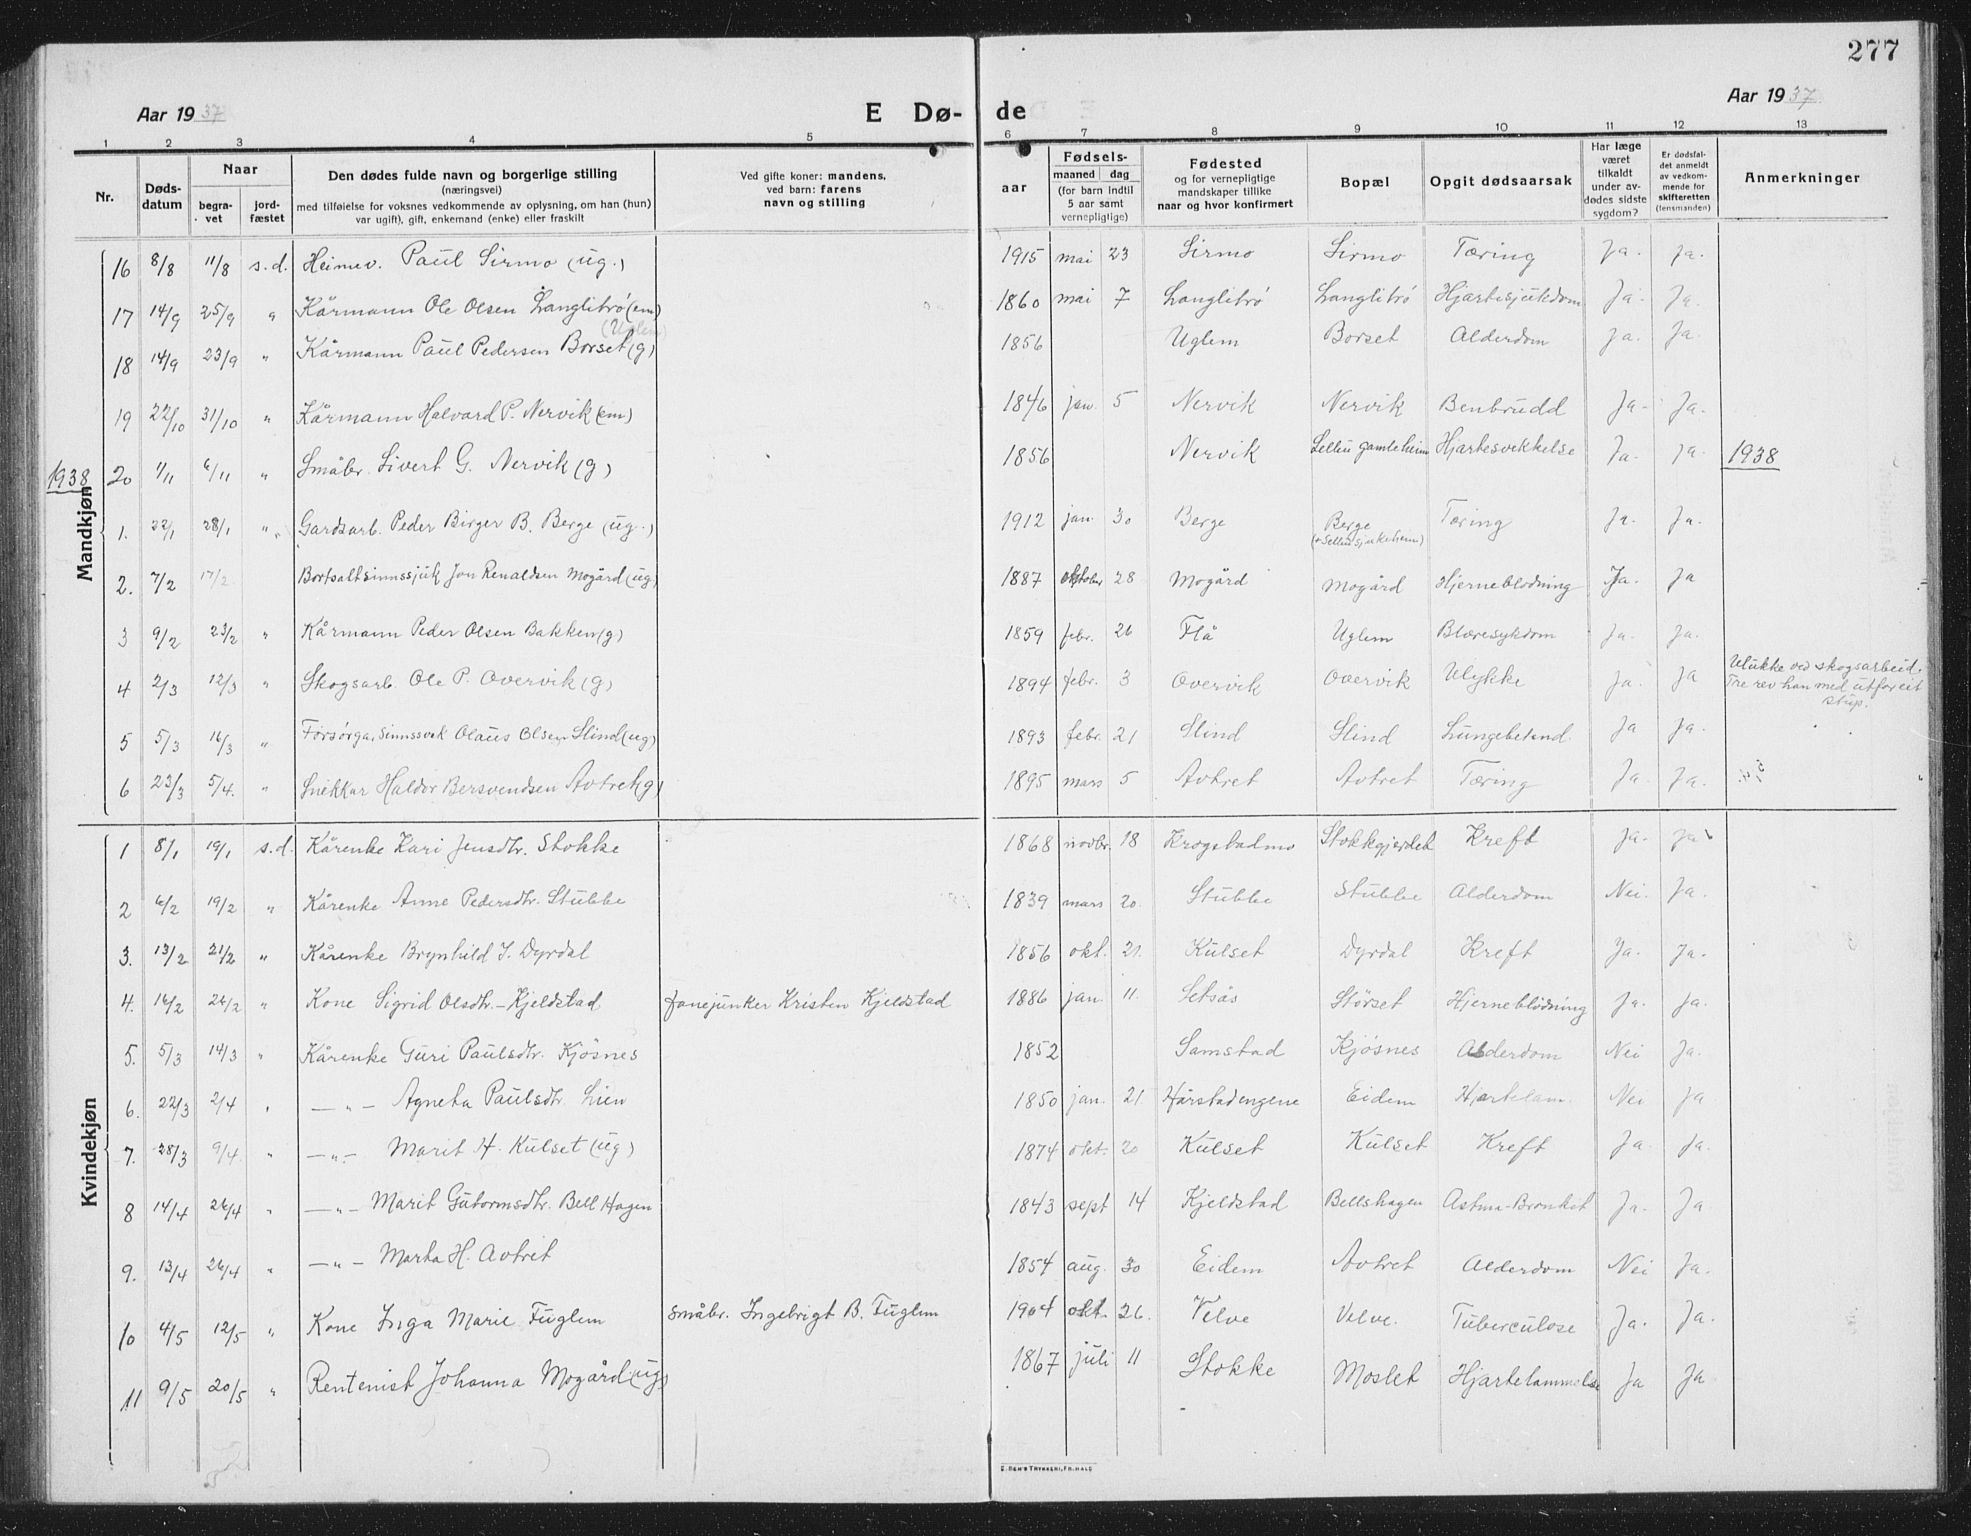 277
Aar 1937
E Dø- de
Aar 1937
1 2 3 4 5 6 7 8 9 10 11 12 13
Nr.
Døds-
datum
Naar
begra-
vet
jord-
fæstet
Den dødes fulde navn og borgerlige stilling
(næringsvei)
med tilføielse for voksnes vedkommende av oplysning, om han (hun)
var ugift), gift, enkemand (enke) eller fraskilt
Ved gifte koner: mandens,
ved barn: farens
navn og stilling
aar
Fødsels-
maaned dag
(for barn indtil
5 aar samt
vernepligtige)
Fødested
og for vernepligtige
mandskaper tillike
naar og hvor konfirmert
Bopæl
Opgit dødsaarsak
Har læge
været
tilkaldt
under av-
dødes sidste
sygdom?
Er dødsfal-
det anmeldt
av vedkom-
mende for
skifteretten
(lensmanden)
Anmerkninger
Mandkjøn
16 8/8 11/8 s.d. Heimev. Paul Sirmo (ug.) 1915 mai 23 Sirmo Sirmo Tæring Ja. Ja.
17 14/9 25/9 " Kårmann Ole Olsen Langlitrö (em) 1860 mai 7 Langlitrö Langlitrö Hjartesjukdom Ja. Ja.
(Uglem)
18 14/9 23/9 " Kårmann Paul Pedersen Borset (g) 1856 Uglem Borset Alderdom Ja. Ja.
19 22/10 31/10 " Kårmann Halvard P. Nervik (em) 1846 jan. 5 Nervik Nervik Benbrudd Ja. Ja.
20 1/11 6/11 " Småbr. Sivert G. Nervik (g) 1856 Nervik Selbu gamleheim Hjartesvekkelse Ja. Ja. 1938
1938
1. 22/1 28/1 " Gardsarb. Peder Birger B. Berge (ug.) 1912 jan. 30 Berge Berge Tæring Ja. Ja.
2. 7/2 17/2 Bortsatt sinnssjuk Jon Renaldsen Mogård (ug) 1887 oktober 28 Mogård Mogård Hjerneblödning Ja. Ja
3 9/2 23/2 " Kårmann Peder Olsen Bakken (g) 1859 febr. 26 Flå Uglem Blæresykdom Ja. Ja.
4 2/3 12/3 " Skogsarb. Ole P. Overvik (g) 1894 febr. 3 Overvik Overvik Ulykke Ja. Ja Ulukke ved skogsarbeid.
Tre rev han med utfor eit
stup.
5 5/3 16/3 " Forsörga, sinnssvek Olaus Olsen Slind (ug) 1893 febr. 21 Slind Slind Lungebetend. Ja Ja.
6 23/3 5/4. " Snekkar Haldor Bersvendsen Avtret (g) 1895 mars 5 Avtret Avtret Tæring Ja. Ja.
Kvindekjøn
1 8/1 19/1 s.d. Kårenke Kari Jensdtr. Stokke 1868 novbr. 18 Krogstadmo Stokkgjerdet Kreft Ja. Ja.
2 6/2 19/2 " Kårenke Anne Pedersdtr. Stubbe 1839 mars 20. Stubbe Stubbe Alderdom Nei. Ja.
3. 13/2 21/2 " Kårenke Brynhild J. Dyrdal 1856 okt. 21. Kulset Dyrdal Kreft Ja. Ja.
4. 16/2 26/2 " Kone Sigrid Olsdtr. - Kjeldstad fanejunker Kristen Kjeldstad 1886 jan. 11. Setsås Störset Hjerneblödning Ja. Ja.
5. 5/3 14/3 " Kårenke Guri Paulsdtr. Kjösnes 1852 Samstad Kjösnes Alderdom Nei Ja.
6. 22/3 2/4 " — " — Agneta Paulsdtr. Lien 1850 jan. 21 Hårstadengene Eidem Hjartelam. Nei Ja
7. 28/3 9/4. " — " — Marit H. Kulset (ug) 1874 okt. 20 Kulset Kulset Kreft Ja. Ja.
8 14/4 26/4 " — " — Marit Gutormsdtr. Bell Hagen 1843 sept 14 Kjeldstad Bellshagen Astma-Bronkit Ja. Ja
9. 13/4 26/4 " — " — Marta H. Avtret 1854 aug. 30 Eidem Avtret Alderdom Nei Ja.
10 4/5 12/5 " Kone Inga Marie Fuglem Småbr. Ingebrigt B. Fuglem 1904 okt. 26. Velve Velve. Tuberculose Ja. Ja.
11 9/5 20/5 " Rentenist Johanna Mogård (ug) 1867 juli 11 Stokke Moslet Hjartelammelse Ja Ja